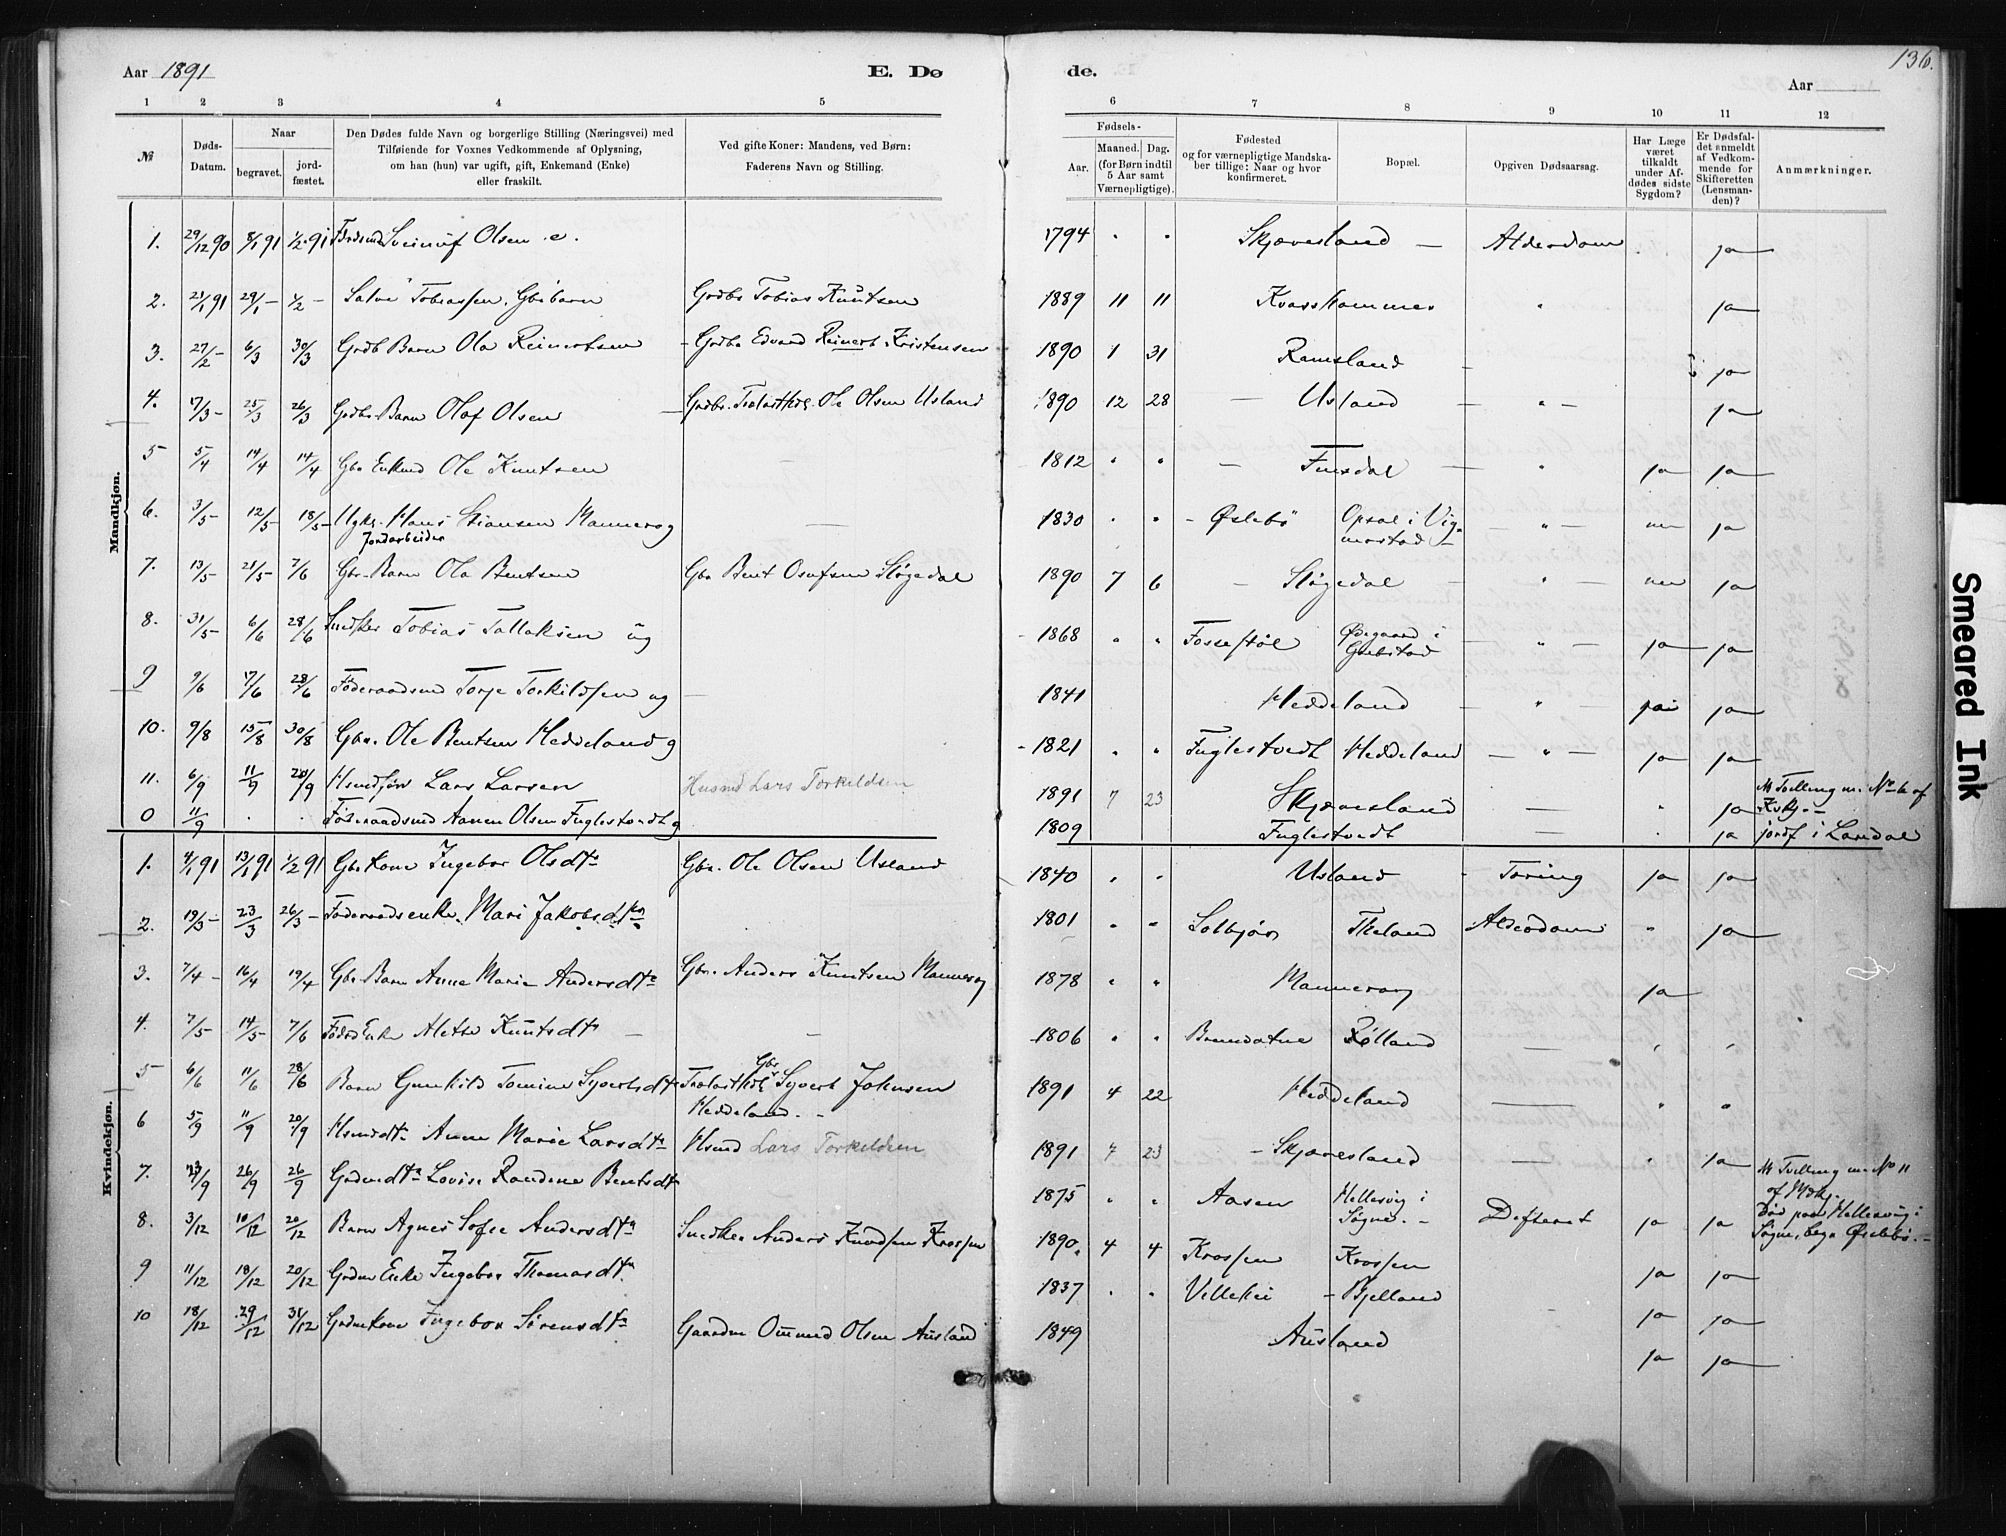 Aar 1891 E. Dø de. Aar 136.
1 2 3 4 5 6 7 8 9 10 11 12
№ Døds-Datum. Naar begravet. jord-fæstet. Den Dødes fulde Navn og borgerlige Stilling (Næringsvei) med Tilføiende for Voxnes Vedkommende af Oplysning, om han (hun) var ugift, gift, Enkemand (Enke) eller fraskilt. Ved gifte Koner: Mandens, ved Børn: Faderens Navn og Stilling. Fødsels- Aar. Maaned. Dag. (for Børn indtil 5 Aar samt Værnepligtige). Fødested og for værnepligtige Mandskaber tillige: Naar og hvor konfirmeret. Bopæl. Opgiven Dødsaarsag. Har Læge været tilkaldt under Afdødes sidste Sygdom? Er Dødsfaldet anmeldt af Vedkommende for Skifteretten (Lensmanden)? Anmærkninger.
Mandkjøn.
1. 29/12 90 8/1 91 1/2 91 Sveinuf Olsen e. 1794 " " Skjævesland — Alderdom ja
2. 21/1 91 29/1 – 1/2 – Salve Tobiassen, Gbs barn Grdbr Tobias Knutsen 1889 11 11 Kvasshammer " ja
3. 27/2 – 6/3 30/3 Grdb Barn Ola Reinertsen – Grdbr Edvard Reinert Kristensen 1890 1 31 Ramsland – ja
4. 17/3 – 25/3 26/3 Grdbr. Barn Olaf Olsen — Grdbr. Ole Olsen Usland 1890 12 28 — Usland — " — ja
5 5/4 14/4 14/4 Gbr Enkmd Ole Knutsen — 1812 " " — Finsdal — " ja ja
6. 3/5 12/5 18/5 – Ugkr. Hans Stiansen Mannevog — 1830 " " – Øslebø Opsal i Vig-
Jordarbeider mostad – — " — nei ja
7. 13/5 21/5 – 7/6 Gbr. Barn Ola Bentsen Gbr Bent Osufsen Støgedal 1890 7 6 — Støgedal — " — nei ja
8. 31/5 – 6/6 28/6 Tobias Tallaksen ug – 1868 " " Fossestøl Ødegaard i
— " — ja ja
9 9/6 17/6 28/6 Føderaadsmd Torje Torkildsen ug — 1841 Heddeland — " — ja ja
10. 9/8 15/8 30/8 Gbr. Ole Bentsen Heddeland g – 1821 " " Fuglestvedt Heddeland — " — ja ja
11. 6/9 11/9 20/9 Lars Larsen Husmd Lars Torkildsen 1891 7 23 Skjævesland — " ja Tvilling m. No 6 af
Kvkj. –
0 11/9 . . Føderaadsmd Aanen Olsen Fuglestvedt g 1809 Fuglestvedt — . ja jordf i Laudal
Kvindekjøn.
1. 4/1 91 13/1 91 1/2 91 Gbr Kone Ingebor Olsdtr Gbr. Ole Olsen Usland 1840 " " Usland – Tæring ja ja
2. 19/3 – 23/3 26/3 – Føderaadsenke Mari Jakobsdtr 1801 " " Solbjør Theland Alderdom " ja
3. 7/4 – 16/4 19/4 Gbr Barn Anne Marie Andersdtr Gbr. Anders Knutsen Mannevog 1878 " " Mannevog ja
4. 7/5 14/5 7/6 Alette Knutsdtr — — 1806 " " Røiland — " "
5 6/6 11/6 28/6 Barn Gunhild Tomine Syvertsdtr Gbr Syvert Johnsen
Heddeland. – 1891 4 22 Heddeland — " "
6 5/9 11/9 20/9 Husmdtr Anne Marie Larsdtr Husmd Lars Torkildsen 1891 7 23 – Skjævesland — " ja Tvilling m. No 11
af Mdkj.
7. 23/9 26/9 26/9 Grdmdtr Lovise Randine Bentsdtr 1875 " " Aasen Hellesvig i
Søgne. – Difterit ja ja Død paa Hellesvig i
Søgne, begr Øslebø. –
8. 3/12 10/12 20/12 Barn Agnes Sofie Andersdtr Snedker Anders Knudsen Krossen 1890. 4 4 Krossen Krossen ja ja
9 11/12 18/12 20/12 Grdm Enke Ingebor Thomasdtr 1837 " " – Bjelland – ja ja
10 18/12 29/12 31/12 Grdm kone Ingebor Sørensdtr Gaardm Ommund Olsen Ausland 1849 Ausland ja ja
Smeared Ink